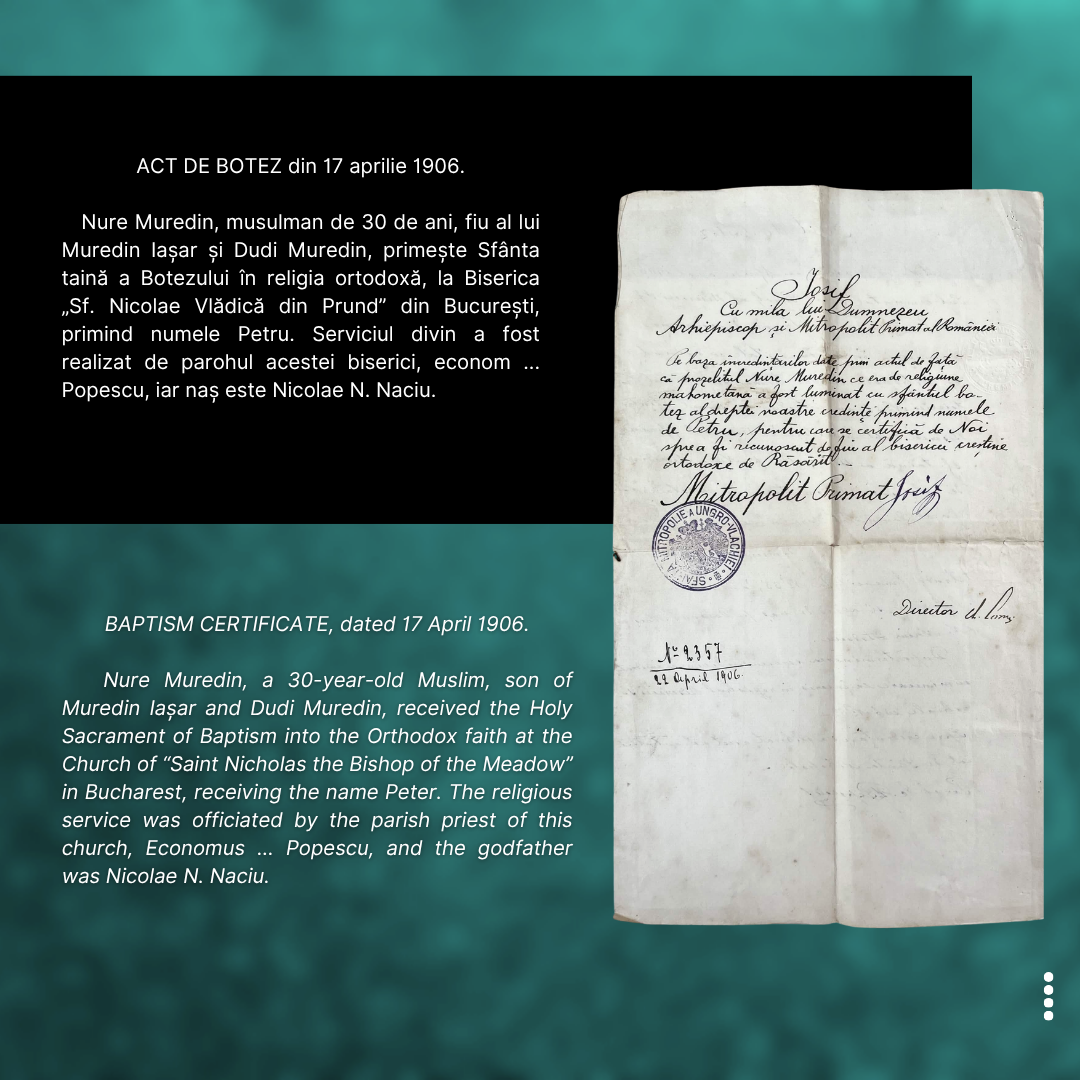 ACT DE BOTEZ din 17 aprilie 1906.
Nure Muredin, musulman de 30 de ani, fiu al lui
Muredin Iașar și Dudi Muredin, primește Sfânta
taină a Botezului în religia ortodoxă, la Biserica
„Sf. Nicolae Vlădică din Prund” din București,
primind numele Petru. Serviciul divin a fost
realizat de parohul acestei biserici, econom ...
Popescu, iar naș este Nicolae N. Naciu.
BAPTISM CERTIFICATE, dated 17 April 1906.
Nure Muredin, a 30-year-old Muslim, son of
Muredin Iașar and Dudi Muredin, received the Holy
Sacrament of Baptism into the Orthodox faith at the
Church of “Saint Nicholas the Bishop of the Meadow”
in Bucharest, receiving the name Peter. The religious
service was officiated by the parish priest of this
church, Economus ... Popescu, and the godfather
was Nicolae N. Naciu.
Iosif
Cu mila lui Dumnezeu
Arhiepiscop și Mitropolit Primat al României
Pe baza incredintărilor date prin actul de față
că prozelitul Nure Muredin ce era de religiune
mahometană a fost luminat cu sfântul bo-
tez al dreptei noastre credințe primind numele
de Petru, pentru care se certifică de Noi
spre a fi recunoscut de fiu al bisericei creștine
ortodoxe de Răsărit.
Mitropolit Primat Iosif
SFÂNTA MITROPOLIE A UNGRO-VLACHIEI
Director
No 2357
22 April 1906